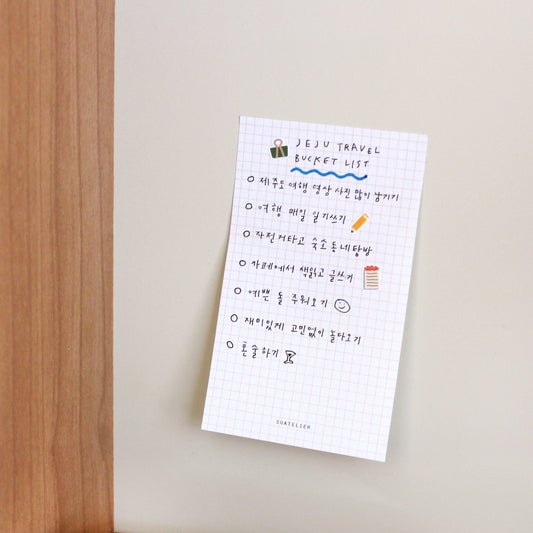 JEJU TRAVEL
BUCKET LIST
제주도 여행 영상 사진 많이 남기기
여행 매일 일기쓰기
자전거타고 숙소동네탐방
카페에서 책읽고 글쓰기
예쁜 돌 주워오기
재미있게 고민없이 놀다오기
혼술하기
SUATELIER